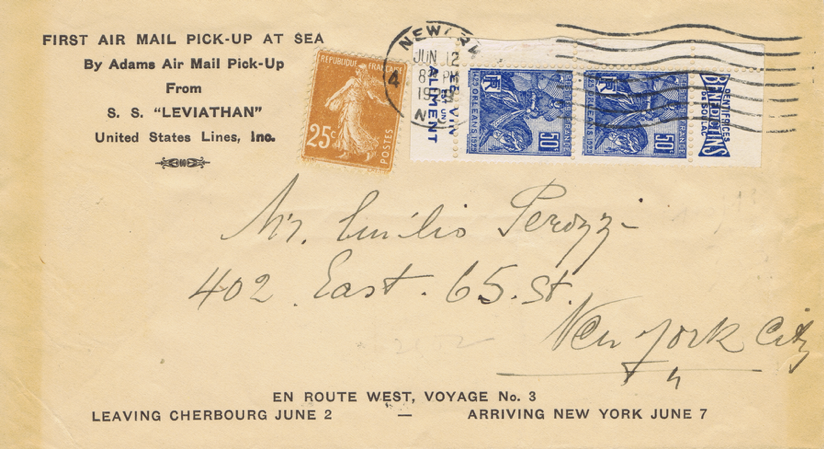 FIRST AIR MAIL PICK-UP AT SEA
By Adams Air Mail Pick-Up
From
S. S. "LEVIATHAN"
United States Lines, Inc.
REPUBLIQUE FRANÇAISE
25c
POSTES
NEW
JUN 12
8 PM
19
N
4
LE VIN
EST UN
ALIMENT
ORLEANS 1929
50c
ORLEANS 1929
50c
DENTIFRICES
BENEDICTINS
DE SOULAC
Mr. Emilio Perozzi
402. East. 65. St.
New York City
EN ROUTE WEST, VOYAGE No. 3
LEAVING CHERBOURG JUNE 2 — ARRIVING NEW YORK JUNE 7